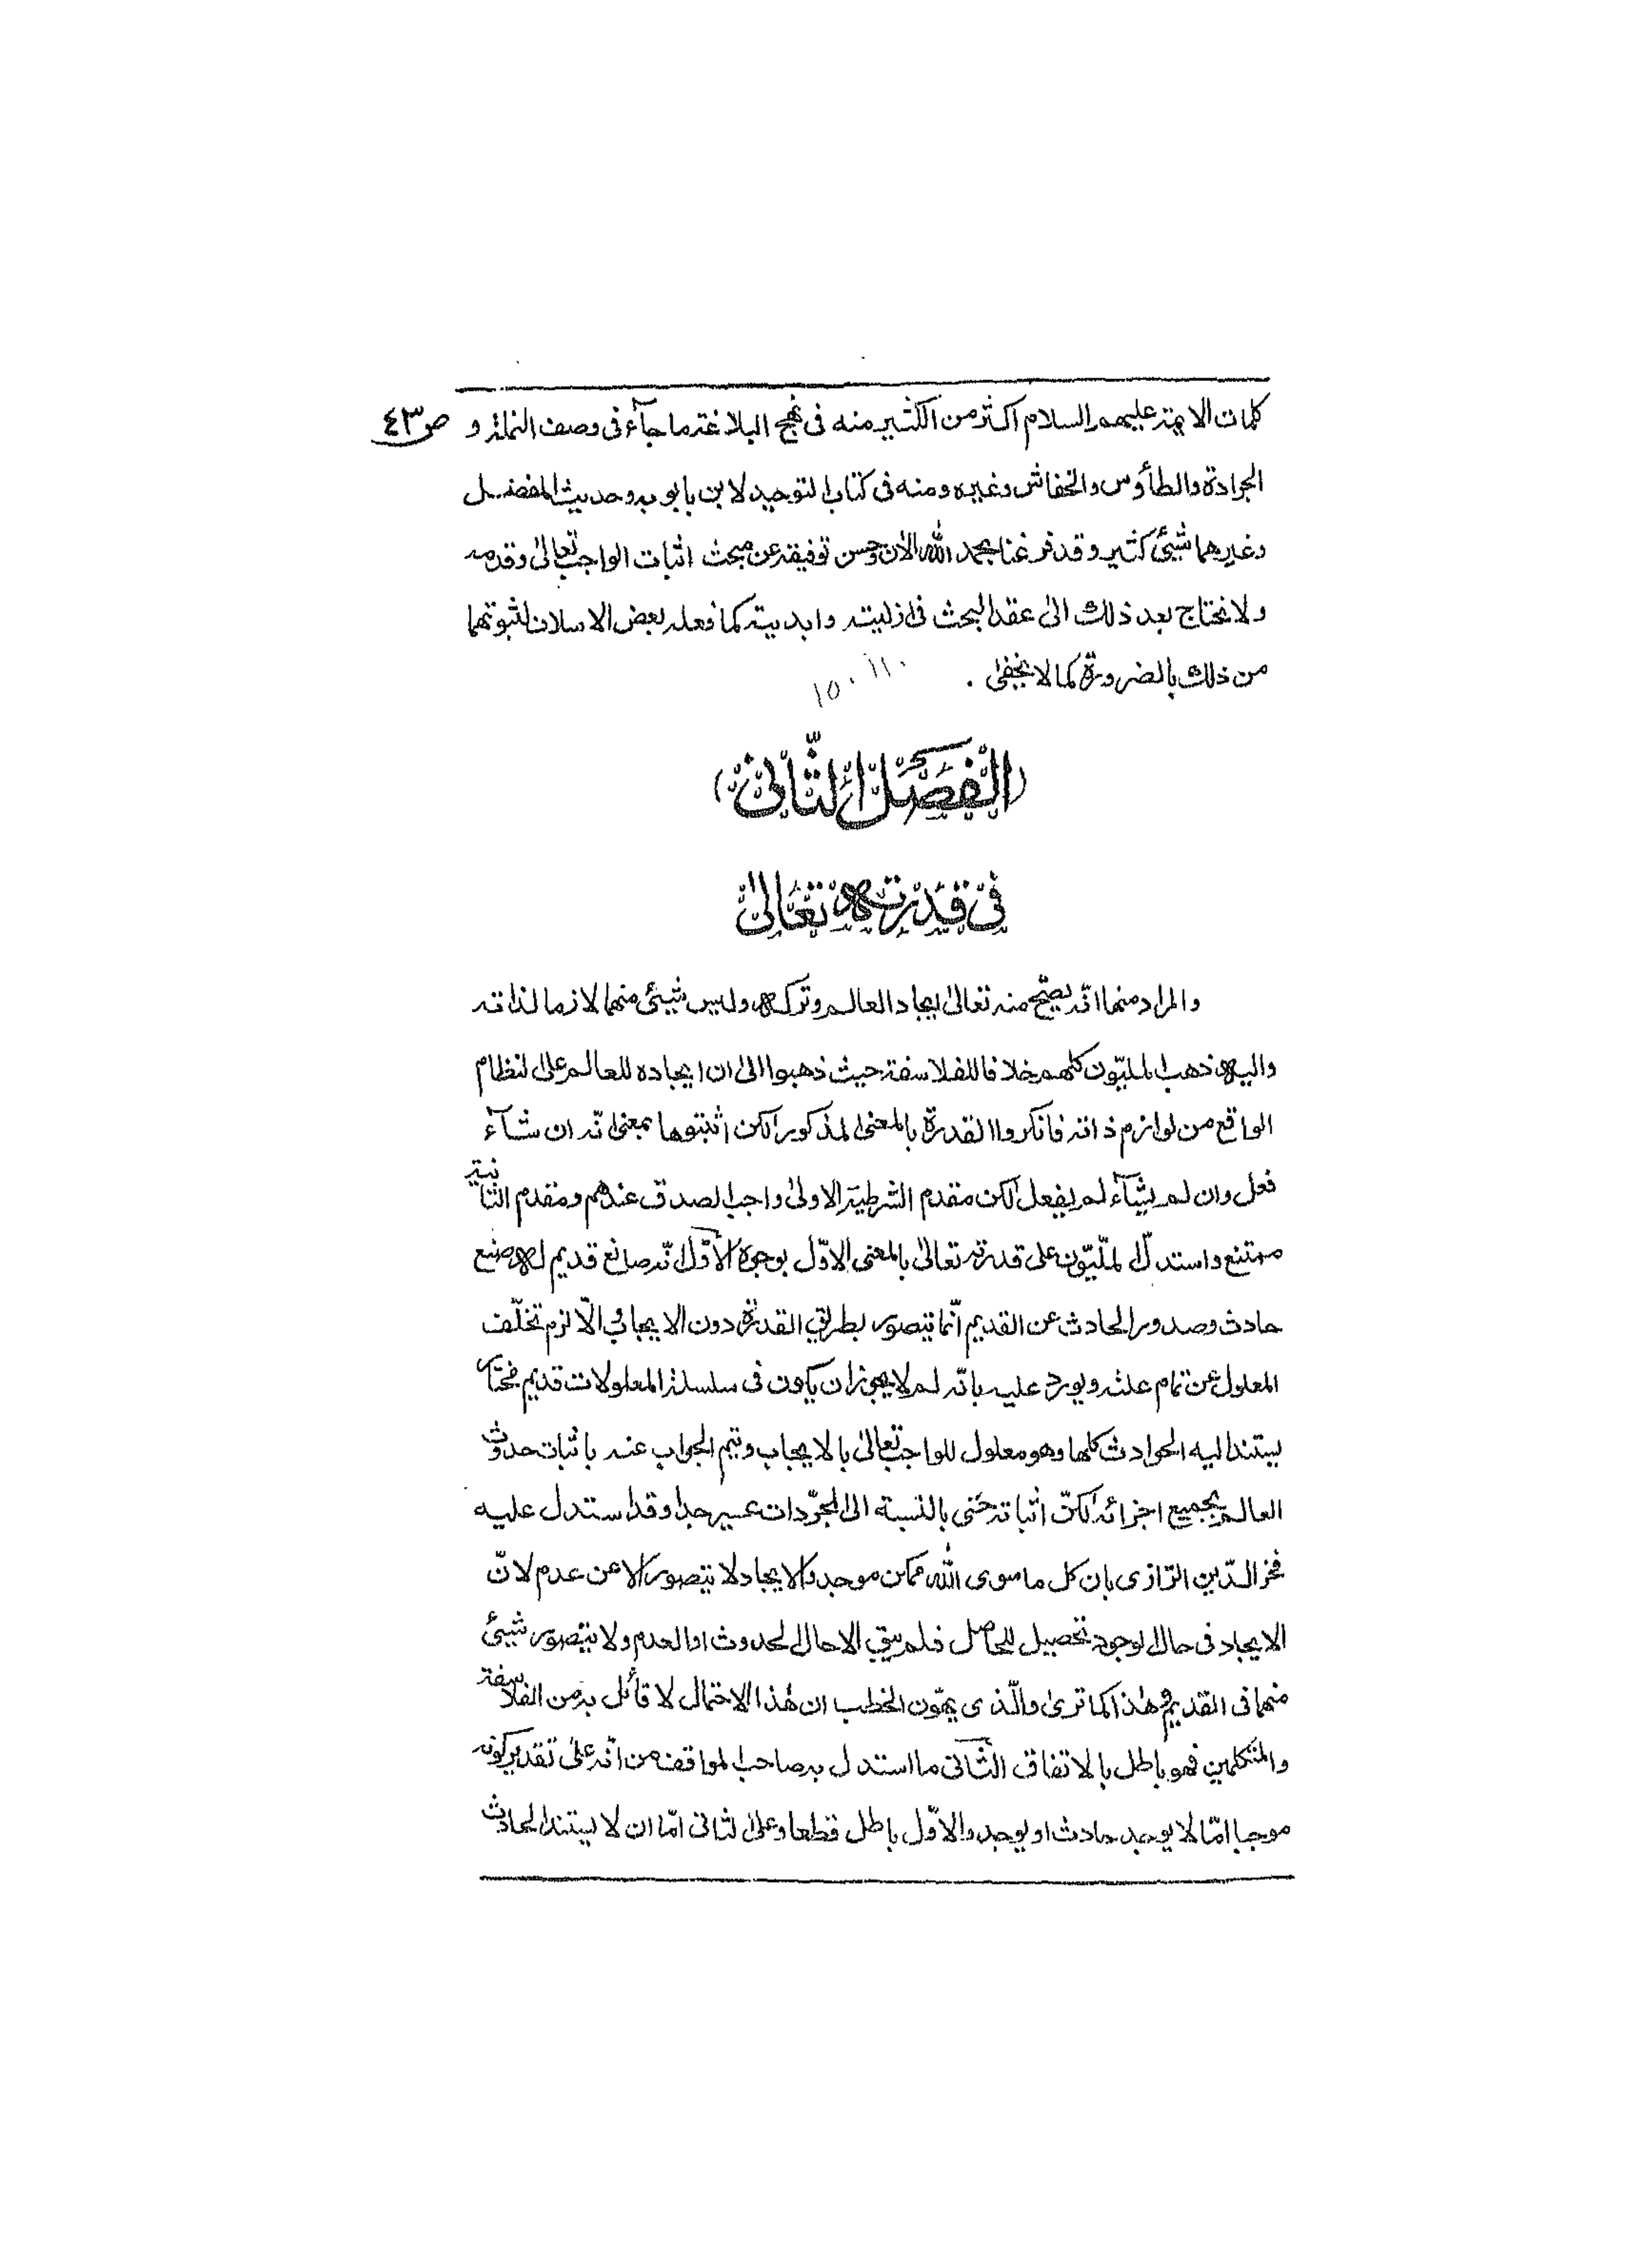 كلمات الايمة عليهم السلام اكثر من الكثير منه فى نهج البلاغة ما جآء فى وصف النملة و ص٤٣
الجرادة والطأوس والخفاش وغيره ومنه فى كتاب التوحيد لابن بابويه وحديث المفضل
وغيرهما شيئ كثير وقد فرغنا بحمد الله الان وحسن توفيقه عن مبحث اثبات الواجب تعالى وقدمه
ولا نحتاج بعد ذلك الى عقد البحث فى ازليته وابديته كما فعله بعض الاسلاف لثبوتهما
من ذلك بالضرورة كما لا يخفى . ١١٠ ١٥٠
(الفصل الثانى)
فى قدرته تعالى
والمراد منها انّه يصحّ منه تعالى ايجاد العالم وتركه وليس شيئ منهما لازما لذاته
واليه ذهب المليّون كلهم خلافا للفلاسفة حيث ذهبوا الى ان ايجاده للعالم على النظام
الواقع من لوازم ذاته فانكروا القدرة بالمعنى المذكور لكن اثبتوها بمعنى انّه ان شآء
فعل وان لم يشآء لم يفعل لكن مقدم الشرطية الاولى واجب الصدق عندهم ومقدم الثانية
ممتنع واستدلّ المليّون على قدرته تعالى بالمعنى الاوّل بوجوه الاوّل انّه صانع قديم له صنع
حادث وصدور الحادث عن القديم انّما يتصور بطريق القدرة دون الايجاب والّا لزم تخلّف
المعلول عن تمام علته ويورد عليه بانّه لم لا يجوز ان يكون فى سلسلة المعلولات قديم مختار
يستند اليه الحوادث كلها وهو معلول للواجب تعالى بالايجاب ويتم الجواب عنه باثبات حدوث
العالم بجميع اجزائه لكنّ اثباته حتى بالنسبة الى المجرّدات عسير جدا وقد استدل عليه
فخر الدّين الرّازى بان كل ما سوى الله ممكن موجد والايجاد لا يتصور الا عن عدم لانّ
الايجاد فى حال الوجود تحصيل للحاصل فلم يبق الا حال الحدوث او العدم ولا يتصور شيئ
منهما فى القديم وهذا كما ترى والّذى يهوّن الخطب ان هذا الاحتمال لا قائل به من الفلاسفة
والمتكلمين فهو باطل بالاتفاق الثّانى ما استدل به صاحب المواقف من انّه على تقدير كونه
موجبا امّا لا يوجد حادث او يوجد والاوّل باطل قطعا وعلى الثانى امّا ان لا يستند الحادث